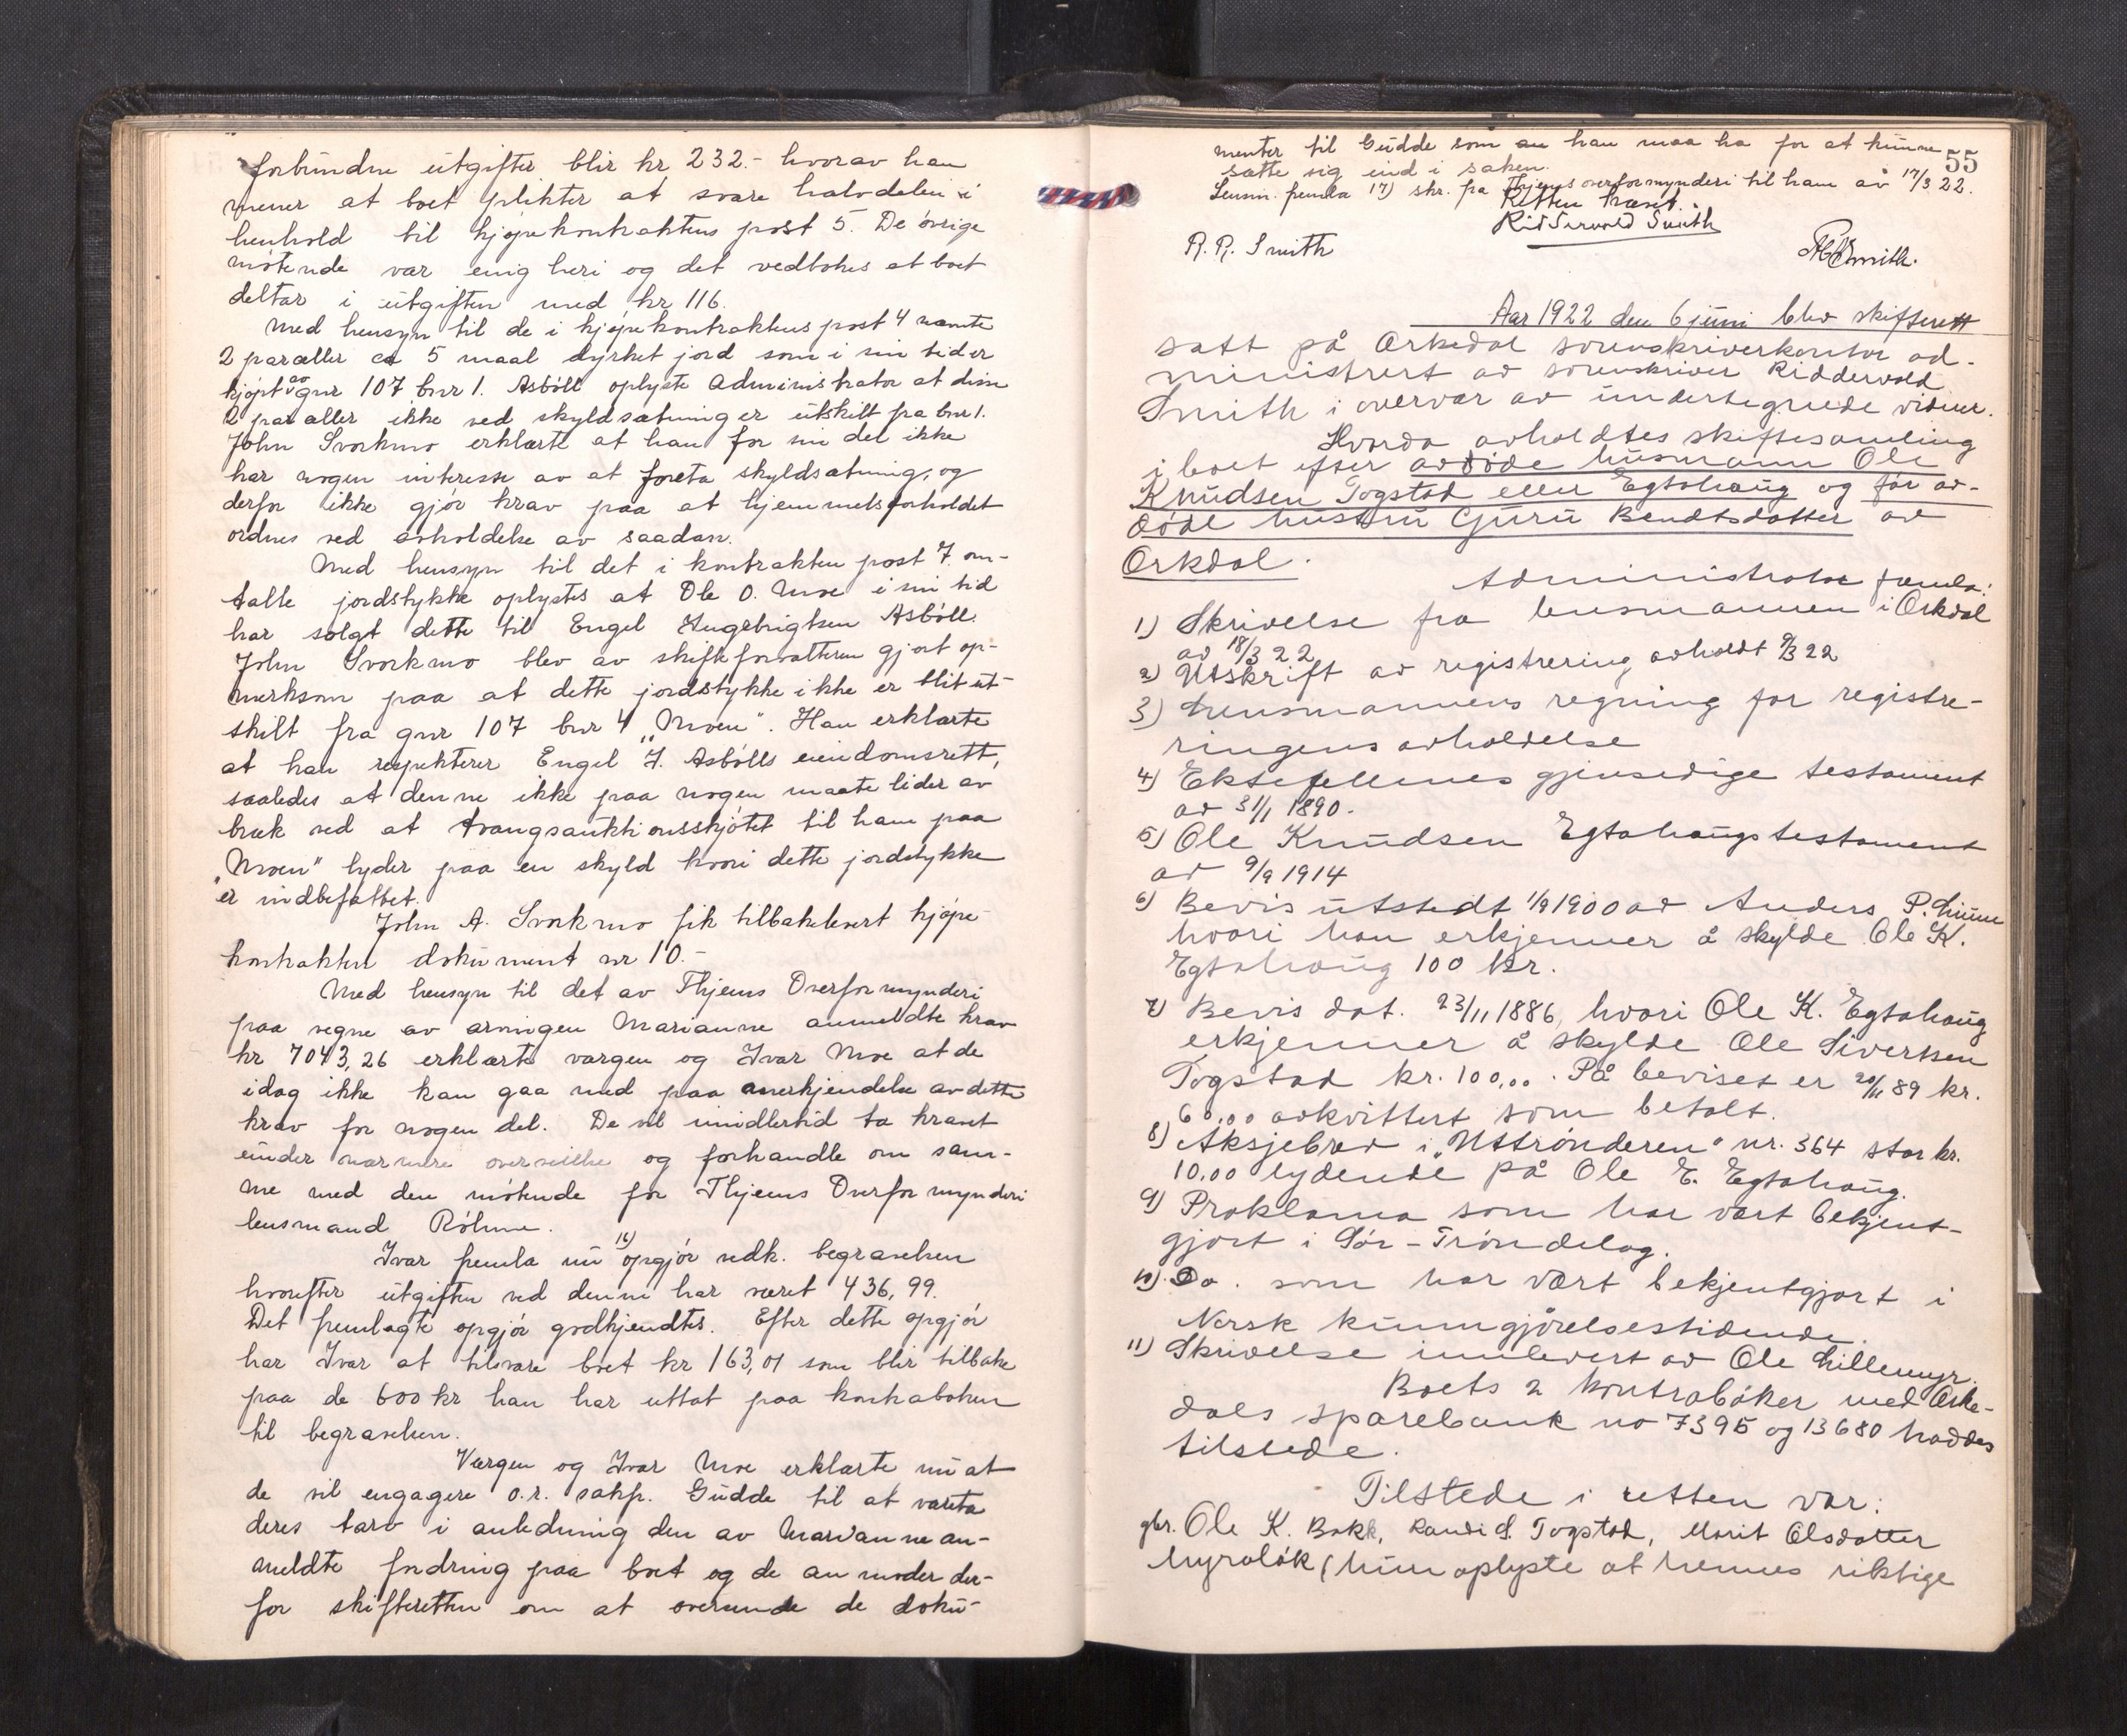 forbundne utgifter blir kr 232.- hvorav han
mener at boet plikter at svare halvdelen i
henhold til kjøpekontraktens post 5. De øvrige
møtende var enig heri og det vedtokes at boet
deltar i utgiften med kr 116.
Med hensyn til de i kjøpekontraktens post 4 nævnte
2 parceller ca 5 maal dyrket jord som i sin tid er
kjøpt av gnr 107 bnr 1. Asbøll oplyste Administrator at disse
2 parceller ikke ved skyldsætning er utskilt fra bnr 1.
John Svorkmo erklærte at han for sin del ikke
har nogen interesse av at foreta skyldsætning, og
derfor ikke gjør krav paa at hjemmelsforholdet
ordnes ved avholdelse av saadan.
Med hensyn til det i kontrakten post 7 om-
talte jordstykke oplystes at Ole O. Moe i sin tid
har solgt dette til Engel Ingebrigtsen Asbøll.
John Svorkmo blev av skifteforvalteren gjort op-
merksom paa at dette jordstykke ikke er blit ut-
skilt fra gnr 107 bnr 4 „Moen". Han erklærte
at han respekterer Engel I. Asbølls eiendomsrett,
saaledes at denne ikke paa nogen maate lider av
bræk ved at tvangsauktionsskjøtet til ham paa
„Moen" lyder paa en skyld hvori dette jordstykke
er indbefattet.
John A. Svorkmo fik tilbakelevert kjøpe-
kontrakten dokument nr 10.-
Med hensyn til det av Thjems Overformynderi
paa vegne av arvingen Marianne anmeldte krav
kr 7043,26 erklærte værgen og Ivar Moe at de
idag ikke kan gaa med paa anerkjendelse av dette
krav for nogen del. De vil imidlertid ta kravet
under nærmere overveielse og forhandle om sam-
me med den møtende for Thjems Overformynderi
lensmand Røhme.
Ivar fremla nu 16) opgjør vedk. begravelsen
hvorefter utgiften ved denne har været 436,99.
Det fremlagte opgjør godkjendtes. Efter dette opgjør
har Ivar at tilsvare boet kr 163,01 som blir tilbake
paa de 600 kr han har uttat paa kontraboken
til begravelsen.
Værgen og Ivar Moe erklærte nu at
de vil engagere o.r. sakf. Gudde til at vareta
deres tarv i anledning den av Marianne an-
meldte fordring paa boet og de anmoder der-
for skifteretten om at oversende de doku-
menter til Gudde som han maa ha for at kunne
sætte sig ind i saken.
Lensm. fremla 17) skr. fra Thjems overformynderi til ham av 17/3 22.
Retten hævet.
Ridderwold Smith
R. R. Smith
55
Aar 1922 den 6 juni blev skifterett
satt på Orkedal sorenskriverkontor ad-
ministrert av sorenskriver Ridderwold
Smith i overvær av undertegnede vidner.
Hvorda avholdtes skiftesamling
i boet efter avdøde husmann Ole
Knudsen Togstad eller Egtahaug og før av-
døde hustru Guru Bendtsdatter av
Orkdal.
Administrator fremla:
1) Skrivelse fra lensmannen i Orkdal
av 18/3 22
2) Utskrift av registrering avholdt 9/3 22
3) Lensmannens regning for registre-
ringens avholdelse
4) Ektefellenes gjensidige testament
av 31/1 1890.
5) Ole Knudsen Egtahaugs testament
av 9/9 1914
6) Bevis utstedt 1/9 1900 av Anders P. Linne
hvori han erkjenner å skylde Ole K.
Egtahaug 100 kr.
7) Bevis dat. 23/11 1886, hvori Ole K. Egtahaug
erkjenner å skylde Ole Sivertsen
Togstad kr. 100,00. På beviset er 20/11 89 kr.
60,00 avkvittert som betalt.
8) Aksjebrev i „Uttrønderen" nr. 364 stor kr.
10,00 lydende på Ole E. Egtahaug.
9) Proklama som har vært bekjent-
gjort i Sør-Trøndelag.
10) Do. som har vært bekjentgjort i
Norsk kunngjørelsestidende.
11) Skrivelse innlevert av Ole Lillemyr.
Boets 2 kontrabøker med Orke-
dals sparebank no 7395 og 13680 haddes
tilstede.
Tilstede i retten var:
gbr. Ole K. Bakk, Randi S. Togstad, Marit Olsdatter
Myraløk (hun oplyste at hennes riktige